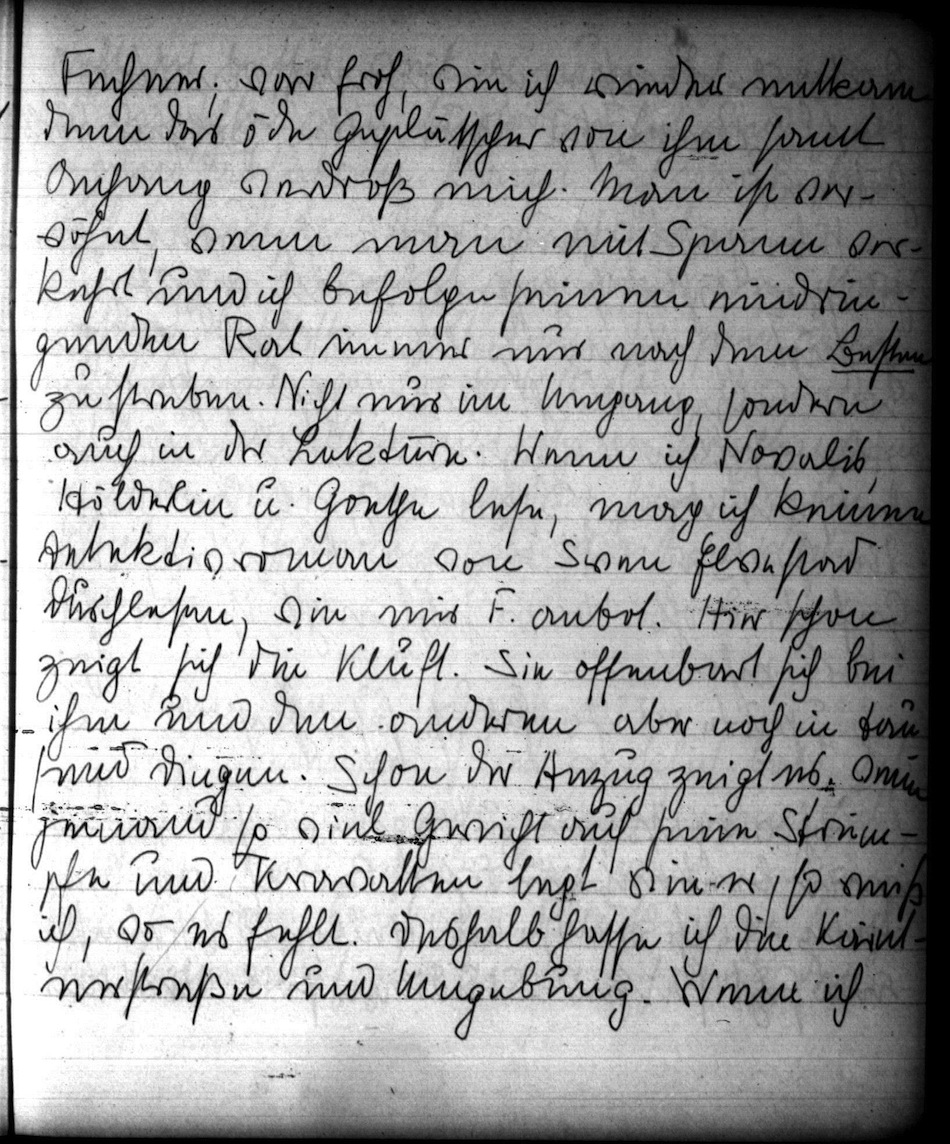 Fechner; war froh, wie ich wieder mitkam
denn das öde Geplätscher von ihm samt
Anhang verdroß mich. Man ist ver-
söhnt, wenn man mit Spann ver-
kehrt und ich befolge seinen eindrin-
genden Rat immer nur nach dem Besten
zu streben. Nicht nur im Umgang, sondern
auch in der Lektüre. Wenn ich Novalis,
Hölderlin u. Goethe lese, mag ich keinen
Detektivroman von Sven Elvestad
durchlesen, wie mir F. anbot. Hier schon
zeigt sich die Kluft. Sie offenbart sich bei
ihm und den anderen aber noch in tau
send Dingen. Schon der Anzug zeigt es. Wenn
jemand so viel Gewicht auf seine Strüm-
pfe und Kravatten legt wie er, so weiß
ich, wo es fehlt. Deshalb hasse ich die Kärnt-
nerstraße und Umgebung. Wenn ich